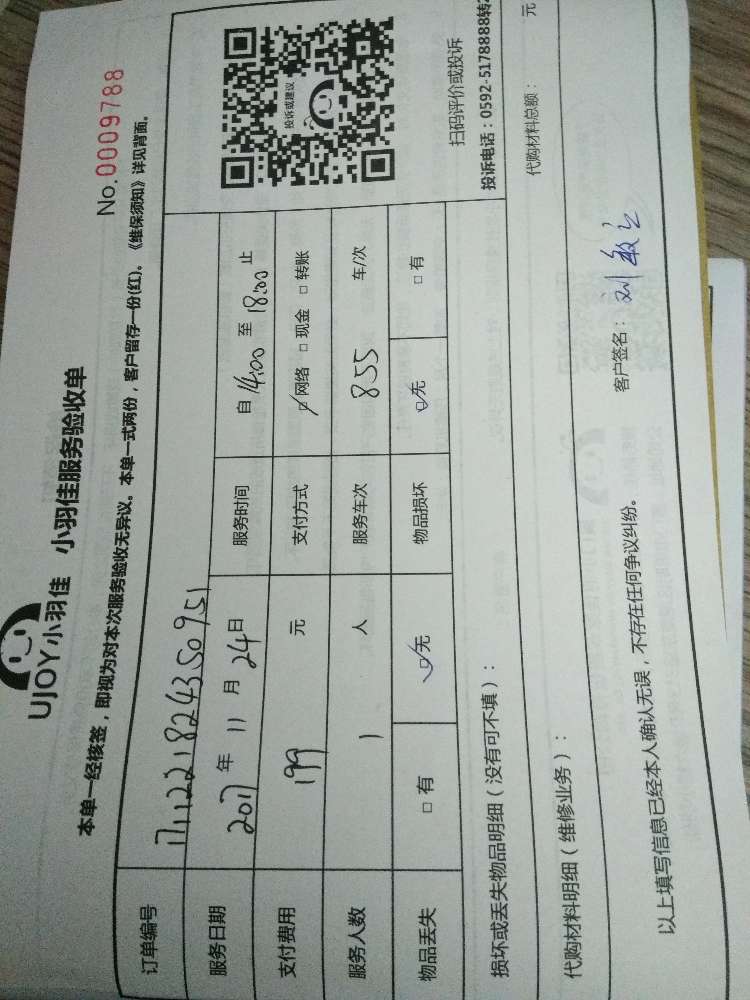 UJOY小羽佳 小羽佳服务验收单
No.0009788
本单一经核签，即视为对本次服务验收无异议。本单一式两份，客户留存一份(红)。《维保须知》详见背面。
订单编号 1711221824350951
服务日期 2017年 11月 24日 服务时间 自14:00至18:00止
支付费用 199 元 支付方式 ☑网络 □现金 □转账
服务人数 1 人 服务车次 855 车/次
物品丢失 □有 ☑无 物品损坏 ☑无 □有
投诉或建议
扫码评价或投诉
投诉电话：0592-5178888转
损坏或丢失物品明细（没有可不填）：
代购材料明细（维修业务）： 代购材料总额： 元
以上填写信息已经本人确认无误，不存在任何争议纠纷。
客户签名：刘敏